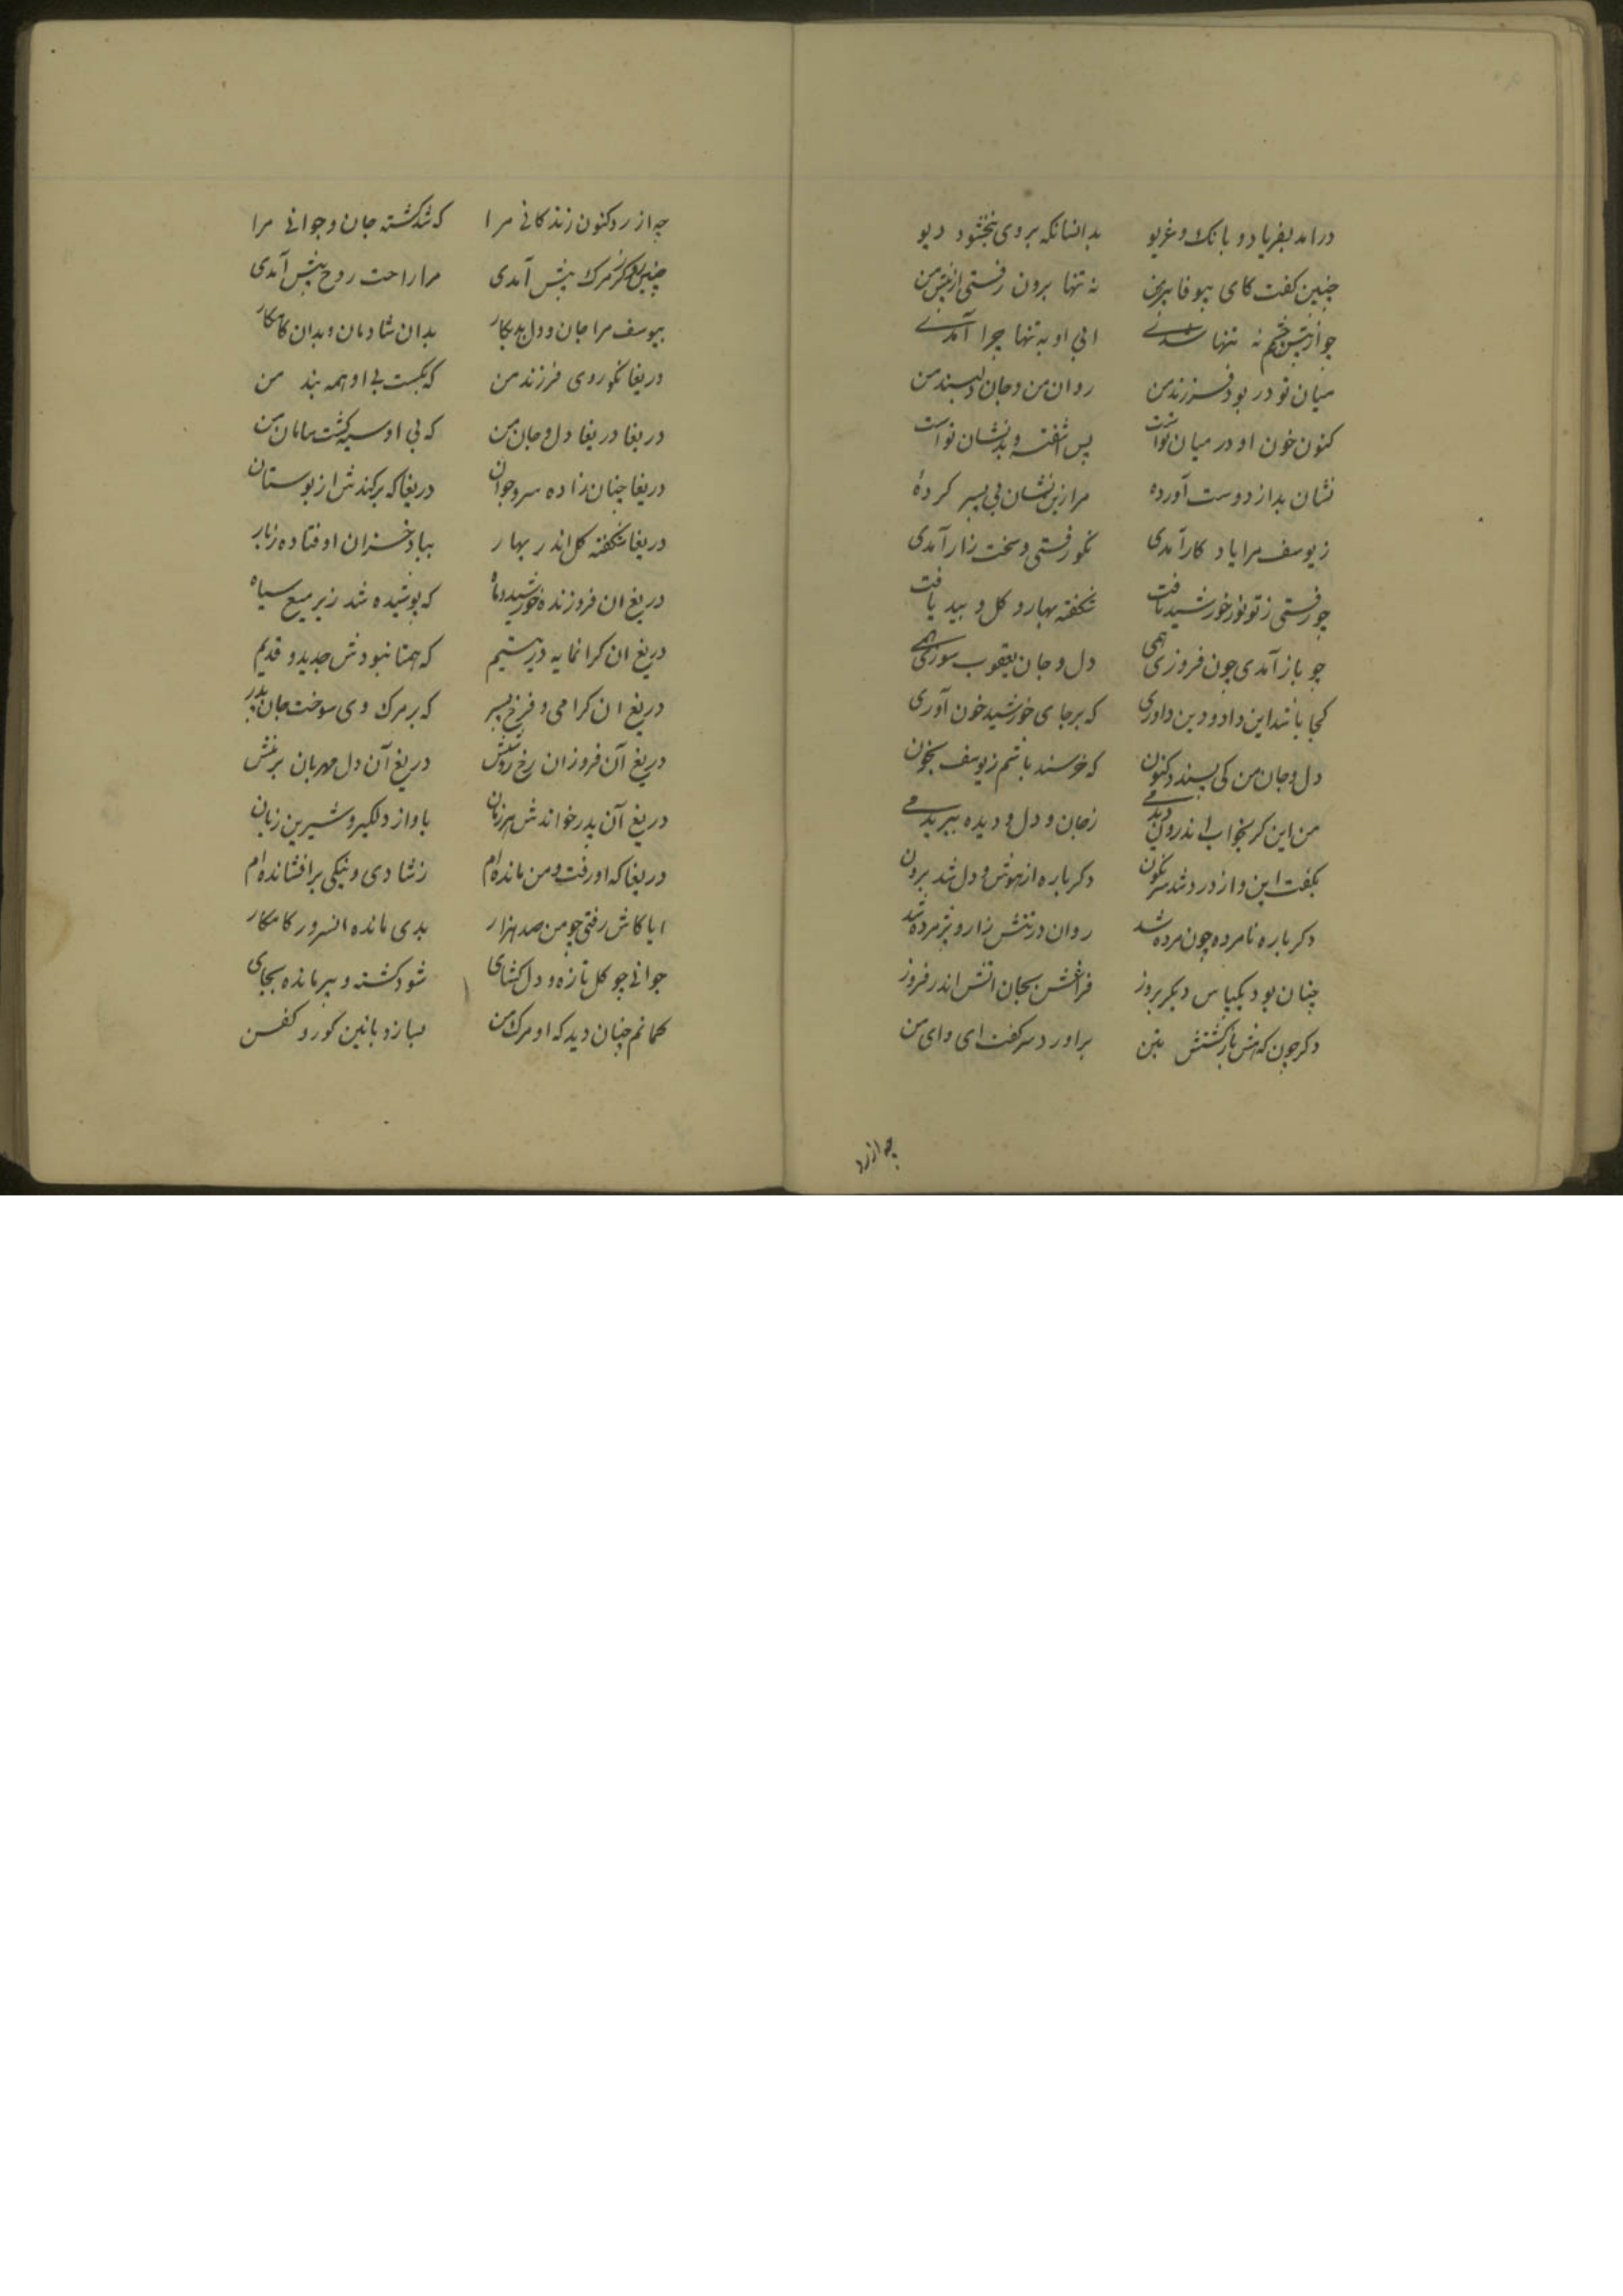 درامد بفریاد و بانک و غریو بدانسانکه بر وی ببخشود دیو
چنین کفت کای بیوفا پیرهن نه تنها برون رفتی از پیش من
چو از پیش چشمم نه تنها شدی ابی او به تنها چرا آمدی
میان تو در بود فرزند من روان من و جان دلبند من
کنون خون او در میان تواست پس آشفته و بد نشان تواست
نشان بد از دوست آورده مرا زین نشان بی پسر کردهٔ
ز یوسف مرا یاد کار آمدی نکو رفتی و سخت زار آمدی
چو رفتی ز تو نور خورشید تافت شکفته بهار و کل و بید یافت
چو باز آمدی چون فروزی همی دل و جان یعقوب سوزی همی
کجا باشد این داد و دین داوری که بر جای خورشید خون آوری
دل و جان من کی پسندد کنون که خرسند باشم ز یوسف بخون
من این کر بخواب اندرون دیدمی ز جان و دل و دیده ببریدمی
بکفت این و از درد شد سرنکون دکرباره از هوش و دل شد برون
دکرباره نامرده چون مرده شد روان در تنش زار و پژمرده شد
چنان بود یکپاس دیکر بروز فراقش بجان اتش اندر فروز
دکر چون که هش باز کشتش بتن براورد سر کفت ای وای من
چه ازرد
چه ازرد کنون زندکانی مرا که شد کشته جان و جوانی مرا
چنین مرک پیش آمدی مرا راحت روح پیش آمدی
بیوسف مرا جان و دل بد بکار بدان شادمان و بدان کامکار
دریغا نکو روی فرزند من که بکسست بی او همه بند من
دریغا دریغا دل و جان من که بی او سیه کشت سامان من
دریغا چنان زاده سرو جوان دریغا که برکندش از بوستان
دریغا شکفته کل اندر بهار بباد خزان اوفتاده ز بار
دریغ ان فروزنده خورشید و ماه که پوشیده شد زیر میغ سیاه
دریغ ان کرانمایه در یتیم که همتا نبودش جدید و قدیم
دریغ ان کرامی و فرخ پسر که بر مرک وی سوخت جان پدر
دریغ آن فروزان رخ روشنش دریغ آن دل مهربان برتنش
دریغ آن پدر خواندنش هر زمان باواز دلکیر و شیرین زبان
دریغا که او رفت و من مانده ام ز شادی و نیکی برافشانده ام
ایا کاش رفتی چو من صد هزار بدی مانده انسرور کامکار
جوانی چو کل تازه و دل کشای شود کشته و پیر مانده بجای
کمانم چنان دید که او مرک من بسازد بائین کور و کفن